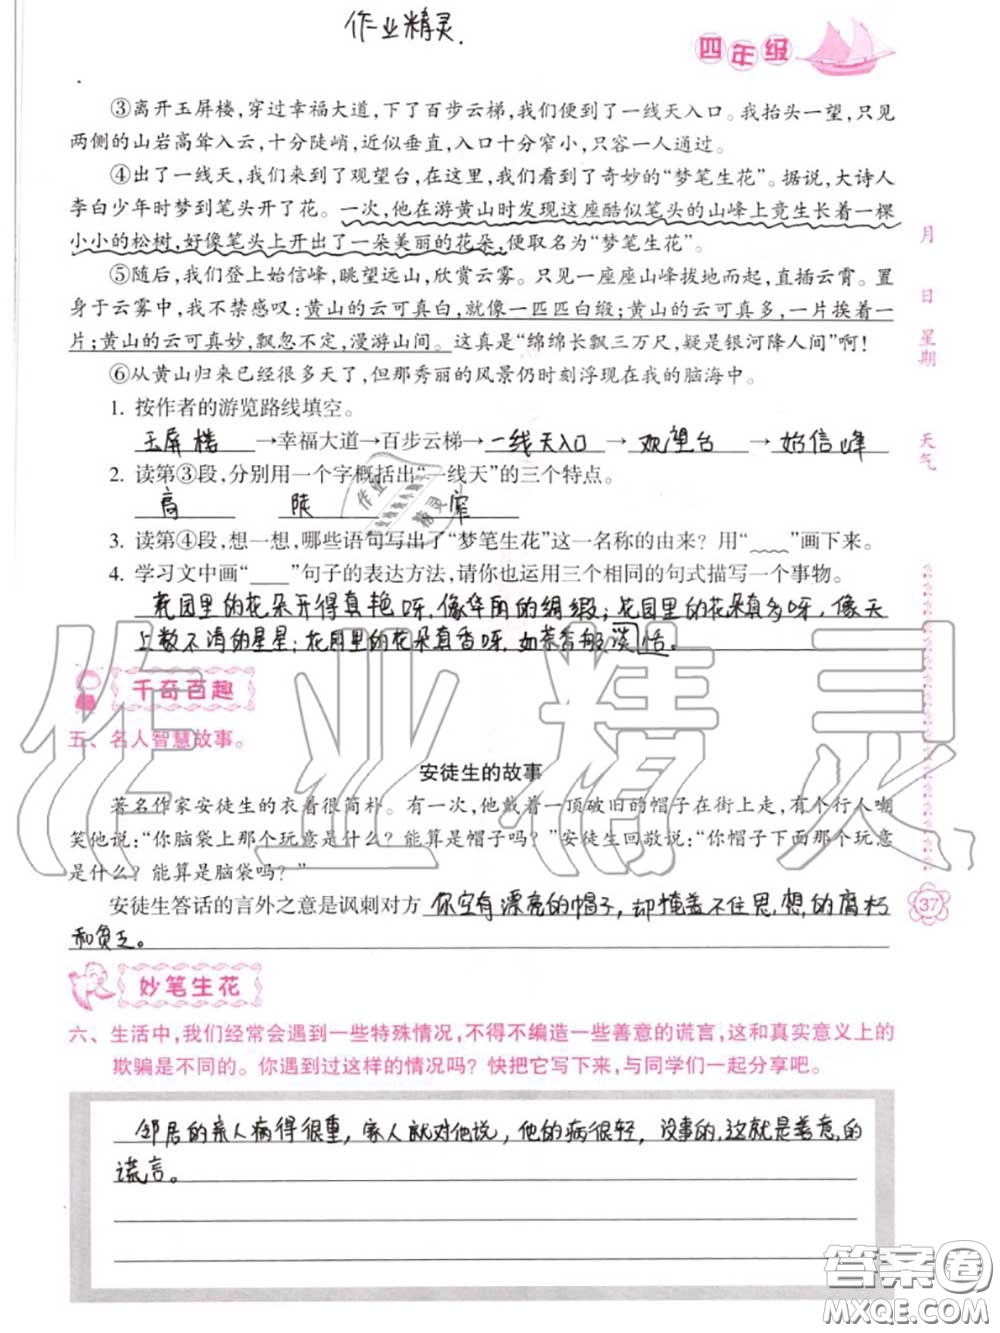 作业精灵.
四年级
③离开玉屏楼,穿过幸福大道,下了百步云梯,我们便到了一线天入口。我抬头一望,只见
两侧的山岩高耸入云,十分陡峭,近似垂直,入口十分窄小,只容一人通过。
④出了一线天,我们来到了观望台,在这里,我们看到了奇妙的“梦笔生花”。据说,大诗人
李白少年时梦到笔头开了花。一次,他在游黄山时发现这座酷似笔头的山峰上竟生长着一棵
小小的松树,好像笔头上开出了一朵美丽的花朵,便取名为“梦笔生花”。
⑤随后,我们登上始信峰,眺望远山,欣赏云雾。只见一座座山峰拔地而起,直插云霄。置
身于云雾中,我不禁感叹:黄山的云可真白,就像一匹匹白缎;黄山的云可真多,一片挨着一
片;黄山的云可真妙,飘忽不定,漫游山间。这真是“绵绵长飘三万尺,疑是银河降人间”啊!
⑥从黄山归来已经很多天了,但那秀丽的风景仍时刻浮现在我的脑海中。
1. 按作者的游览路线填空。
玉屏楼→幸福大道→百步云梯→一线天入口→观望台→始信峰
2. 读第③段,分别用一个字概括出“一线天”的三个特点。
高 陡 窄
3. 读第④段,想一想,哪些语句写出了“梦笔生花”这一名称的由来?用“﹏﹏”画下来。
4. 学习文中画“____”句子的表达方法,请你也运用三个相同的句式描写一个事物。
花园里的花朵开得真艳呀,像华丽的绸缎;花园里的花朵真多呀,像天
上数不清的星星;花园里的花朵真香呀,如茶香般淡恬。
千奇百趣
五、名人智慧故事。
安徒生的故事
著名作家安徒生的衣着很简朴。有一次,他戴着一顶破旧的帽子在街上走,有个行人嘲
笑他说:“你脑袋上那个玩意是什么?能算是帽子吗?”安徒生回敬说:“你帽子下面那个玩意
是什么?能算是脑袋吗?”
安徒生答话的言外之意是讽刺对方 你空有漂亮的帽子,却掩盖不住思想的腐朽
和贫乏。
妙笔生花
六、生活中,我们经常会遇到一些特殊情况,不得不编造一些善意的谎言,这和真实意义上的
欺骗是不同的。你遇到过这样的情况吗?快把它写下来,与同学们一起分享吧。
邻居的亲人病得很重,家人就对他说,他的病很轻,没事的,这就是善意的
谎言。
月
日
星期
天气
37
作业精灵
作业精灵
答案圈
MXQE.COM